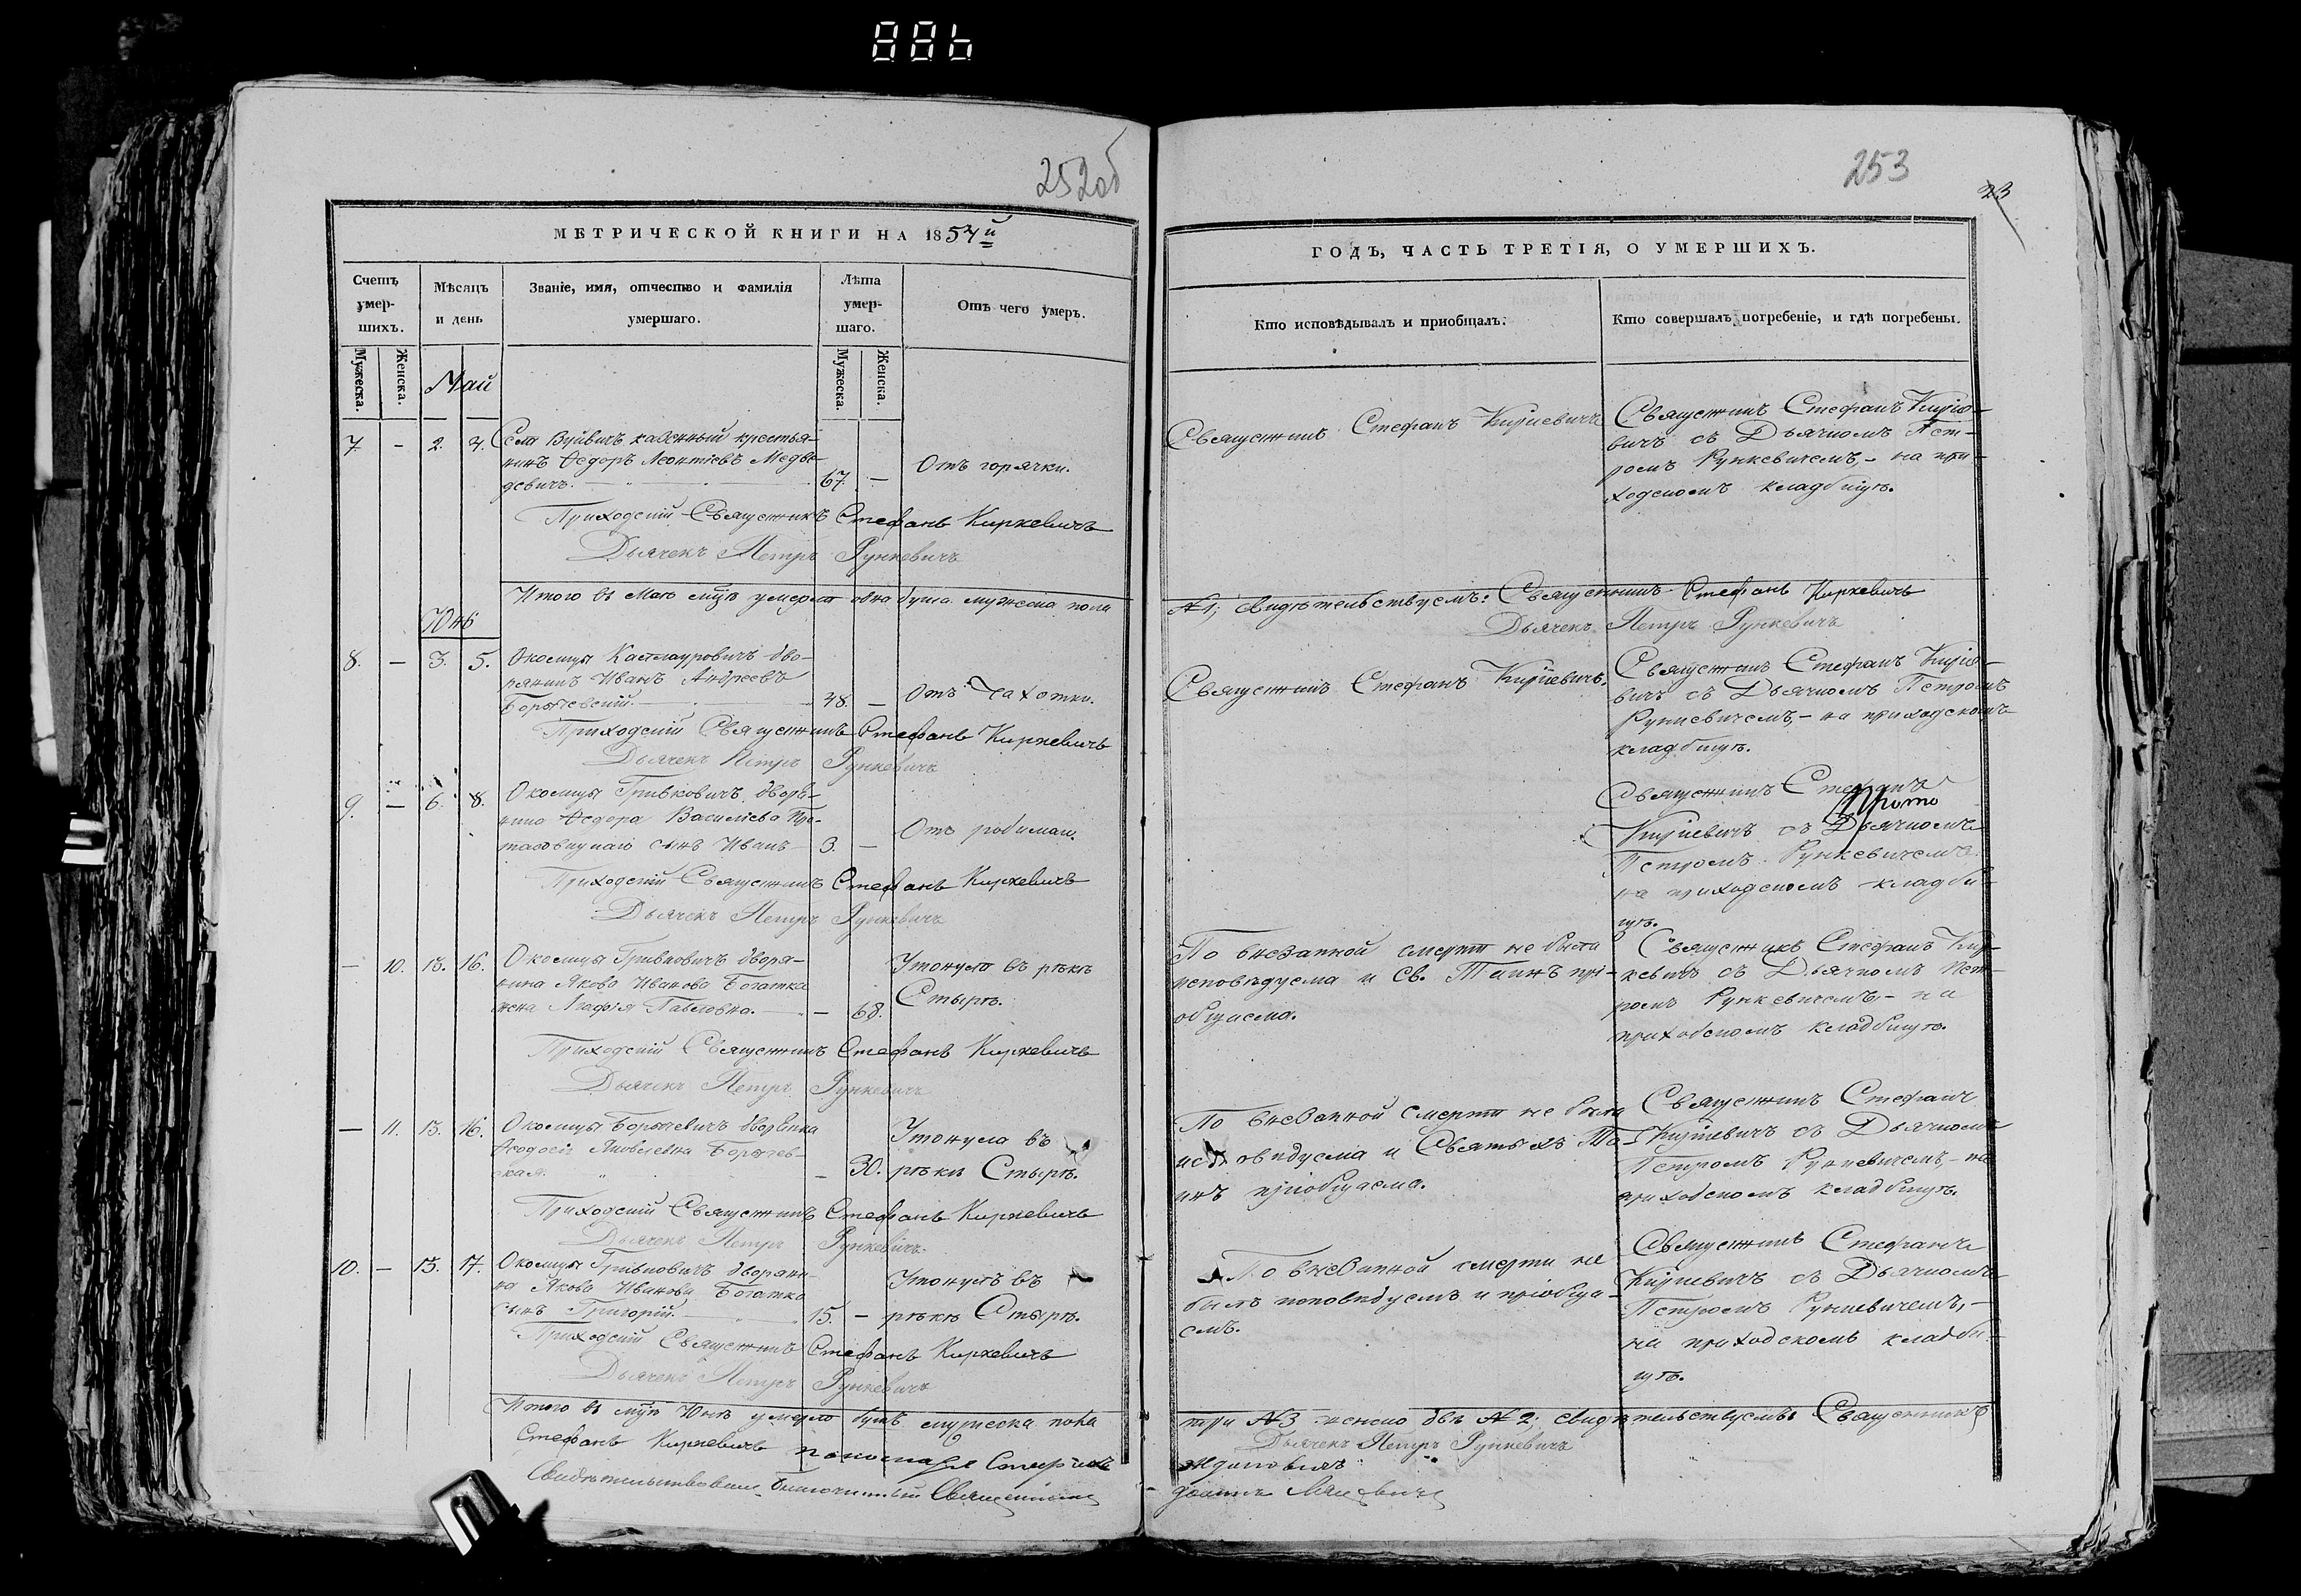 886
252об
МЕТРИЧЕСКОЙ КНИГИ НА 1854й
Счетъ умер-шихъ.
Мѣсяцъ и день
Званіе, имя, отчество и фамилія умершаго.
Лѣта умер-шаго.
Отъ чего умеръ.
Мужеска.
Женска.
Май
Мужеска.
Женска.
7. – 2. 4. Села Вуйвичъ казенный крестья-
нинъ Ѳедоръ Леонтіевъ Медве-
девичъ. 67. – Отъ горячки.
Приходскій Священникъ Стефанъ Киркевичъ
Дьячекъ Петръ Рункевичъ
Итого въ Маѣ мцѣ умерла одна душа мужеска пола
Юнь
8. – 3. 5. Околицы Кастпауровичъ дво-
рянинъ Иванъ Андреевъ
48. – Отъ Чахотки.
Приходскій Священникъ Стефанъ Киркевичъ
Дьячекъ Петръ Рункевичъ
9. – 6. 8. Околицы Гривковичъ дворя-
нина Ѳедора Васильева
сынъ Иванъ 3. –
Приходскій Священникъ Стефанъ Киркевичъ
Дьячекъ Петръ Рункевичъ
– 10. 15. 16. Околицы Гривковичъ дворя-
нина Якова Иванова Богатка
жена Агафія Павловна. – 68. Утонула въ рѣкѣ
Стырѣ.
Приходскій Священникъ Стефанъ Киркевичъ
Дьячекъ Петръ Рункевичъ
– 11. 15. 16. Околицы дворянка
Ѳеодосія Яковлевна
– 30. Утонула въ
рѣкѣ Стырѣ.
Приходскій Священникъ Стефанъ Киркевичъ
Дьячекъ Петръ Рункевичъ
10. – 15. 17. Околицы Гривковичъ дворяни-
на Якова Иванова Богатка
сынъ Григорій. 15. – Утонулъ въ
рѣкѣ Стырѣ.
Приходскій Священникъ Стефанъ Киркевичъ
Дьячекъ Петръ Рункевичъ
Итого въ мцѣ Юнѣ умерло душъ мужеска пола
Стефанъ Киркевичъ пономарь
Свидѣтельствовалъ Благочинный Священникъ
253
23
ГОДЪ, ЧАСТЬ ТРЕТІЯ, О УМЕРШИХЪ.
Кто исповѣдывалъ и приобщалъ.
Кто совершалъ погребеніе, и гдѣ погребены.
Священникъ Стефанъ Киркевичъ
Священникъ Стефанъ Кирке-
вичъ съ Дьячкомъ Пет-
ромъ Рункевичемъ, – на при-
ходскомъ кладбищѣ.
№ 1; свидѣтельствуемъ: Священникъ Стефанъ Киркевичъ
Дьячекъ Петръ Рункевичъ
Священникъ Стефанъ Киркевичъ.
Священникъ Стефанъ Кирке-
вичъ съ Дьячкомъ Петромъ
Рункевичемъ, – на приходскомъ
кладбищѣ.
Священникъ Стефанъ
Киркевичъ съ Дьячкомъ
Петромъ Рункевичемъ
на приходскомъ кладби-
щѣ.
По внезапной смерти не была
исповѣдуема и Св. Таинъ прі-
общаема.
Священникъ Стефанъ Кир-
кевичъ съ Дьячкомъ Пет-
ромъ Рункевичемъ, – на
приходскомъ кладбищѣ.
По внезапной смерти не была
исповѣдуема и Святыхъ Та-
инъ пріобщаема.
Священникъ Стефанъ
Киркевичъ съ Дьячкомъ
Петромъ Рункевичемъ, – на
приходскомъ кладбищѣ.
По внезапной смерти не
былъ исповѣдуемъ и пріобща-
емъ.
Священникъ Стефанъ
Киркевичъ съ Дьячкомъ
Петромъ Рункевичемъ, –
на приходскомъ кладби-
щѣ.
три № 3 женска двѣ № 2; свидѣтельствуемъ Священникъ
Дьячекъ Петръ Рункевичъ